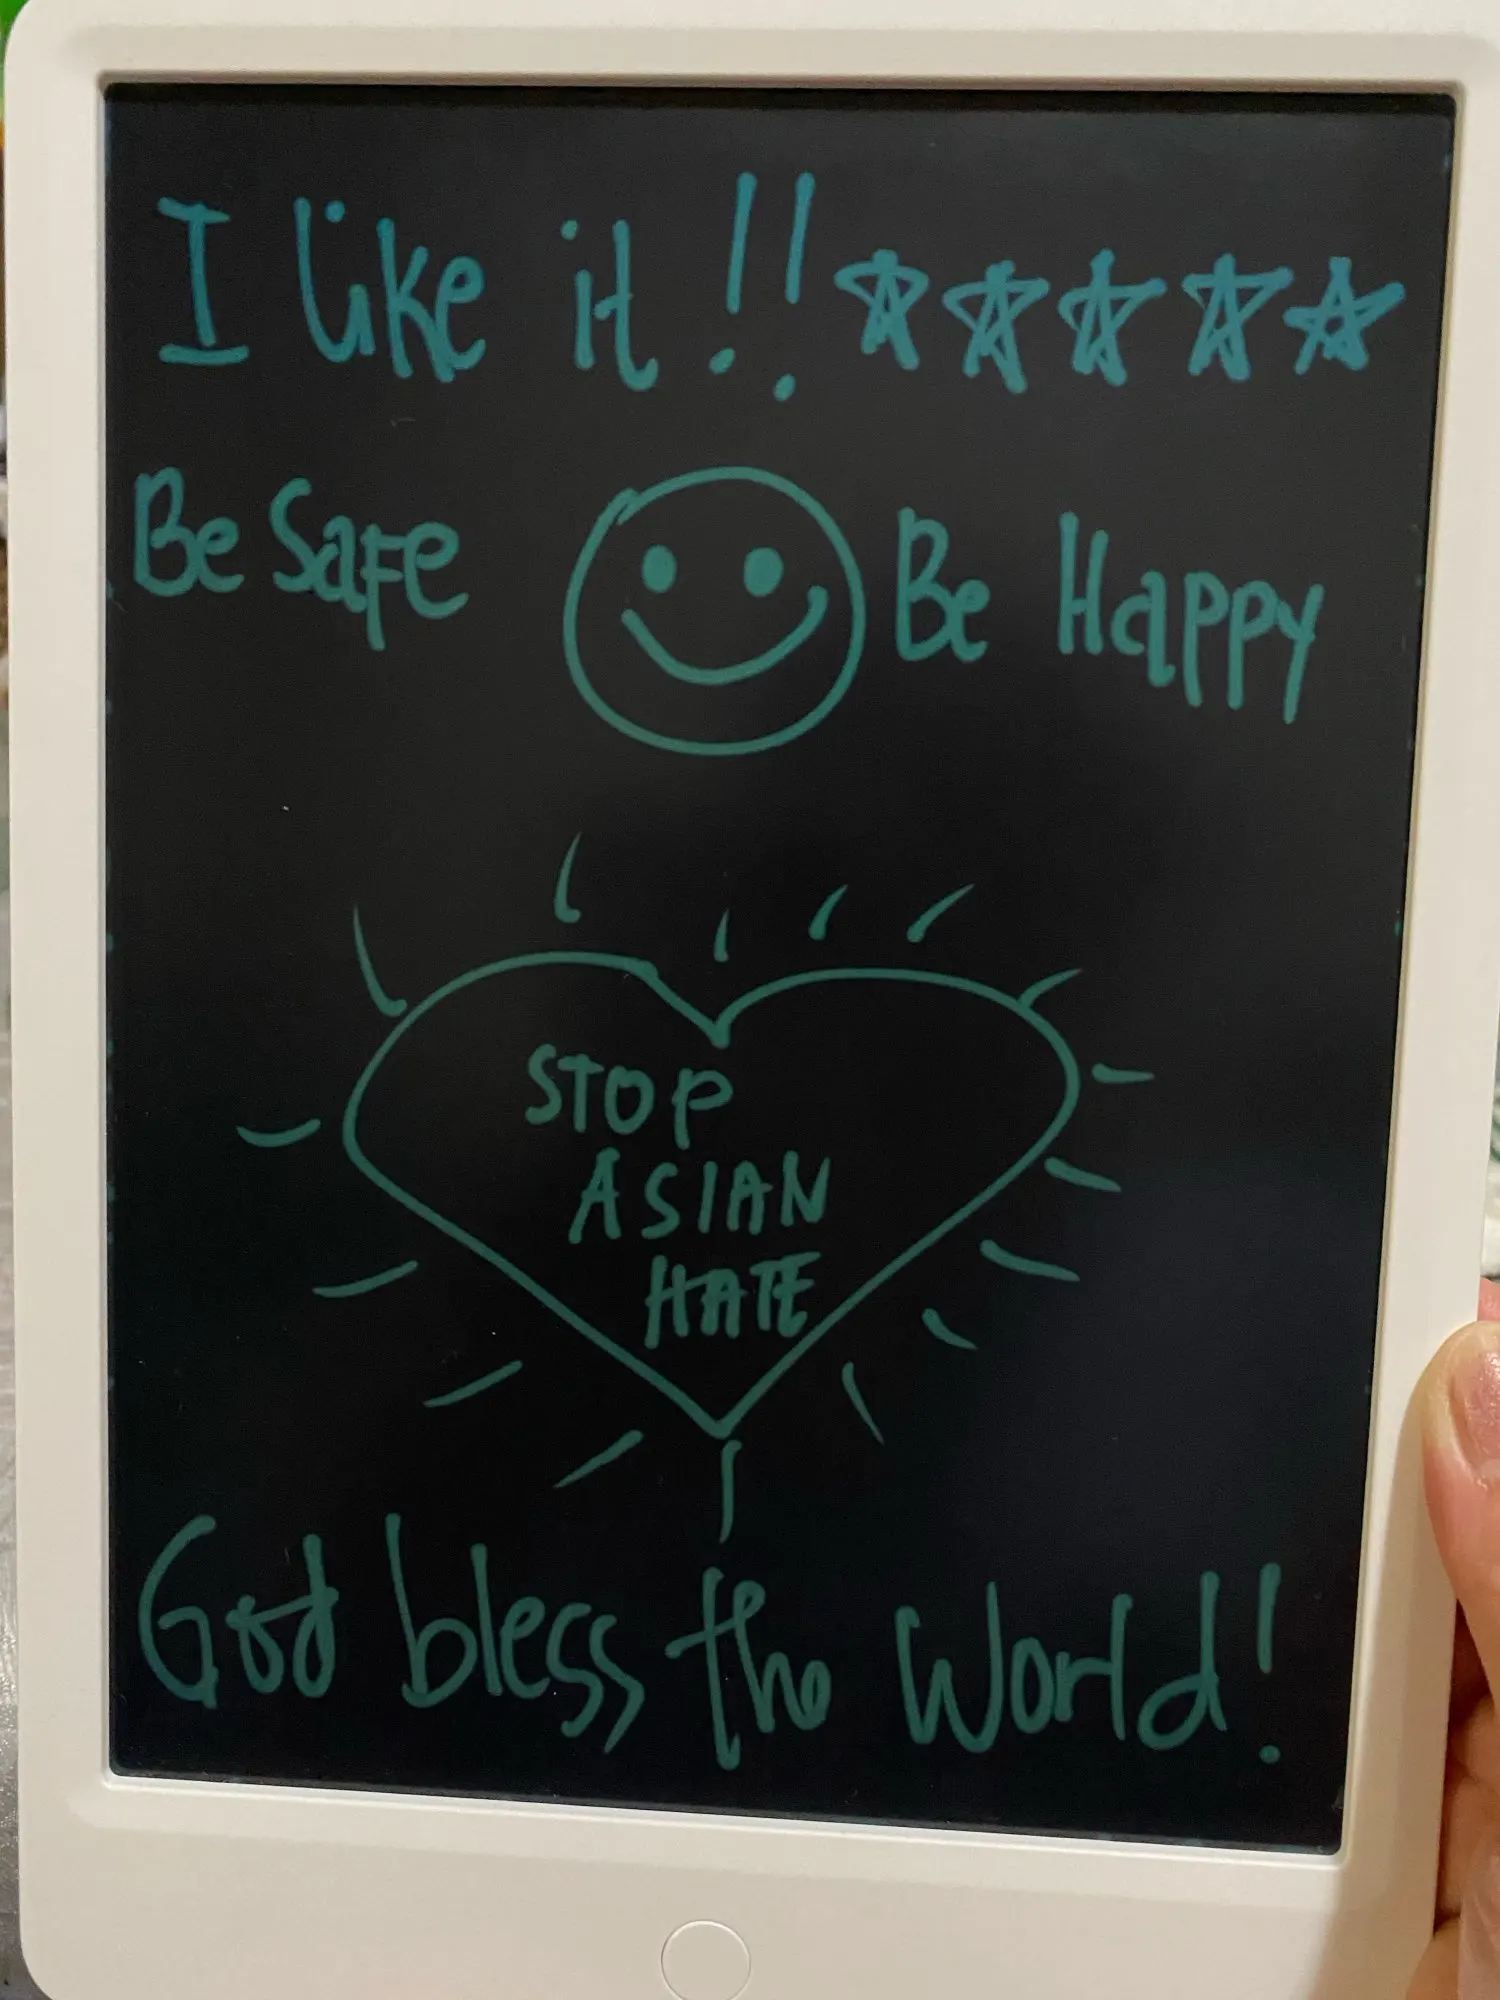 I like it!! ☆☆☆☆☆
Be Safe Be Happy
STOP
ASIAN
HATE
God bless the World!